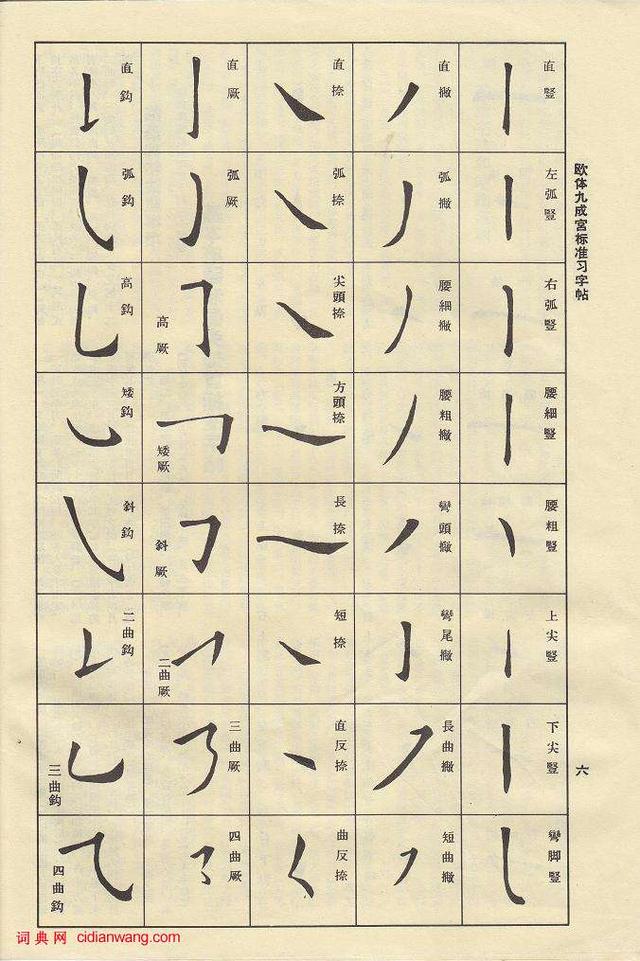 欧体九成宫标准习字帖
六
直竪
左弧竪
右弧竪
腰細竪
腰粗竪
上尖竪
下尖竪
彎脚竪
直撇
弧撇
腰細撇
腰粗撇
彎頭撇
彎尾撇
長曲撇
短曲撇
直捺
弧捺
尖頭捺
方頭捺
長捺
短捺
直反捺
曲反捺
直厥
弧厥
高厥
矮厥
斜厥
二曲厥
三曲厥
四曲厥
直鈎
弧鈎
高鈎
矮鈎
斜鈎
二曲鈎
三曲鈎
四曲鈎
词典网 cidianwang.com